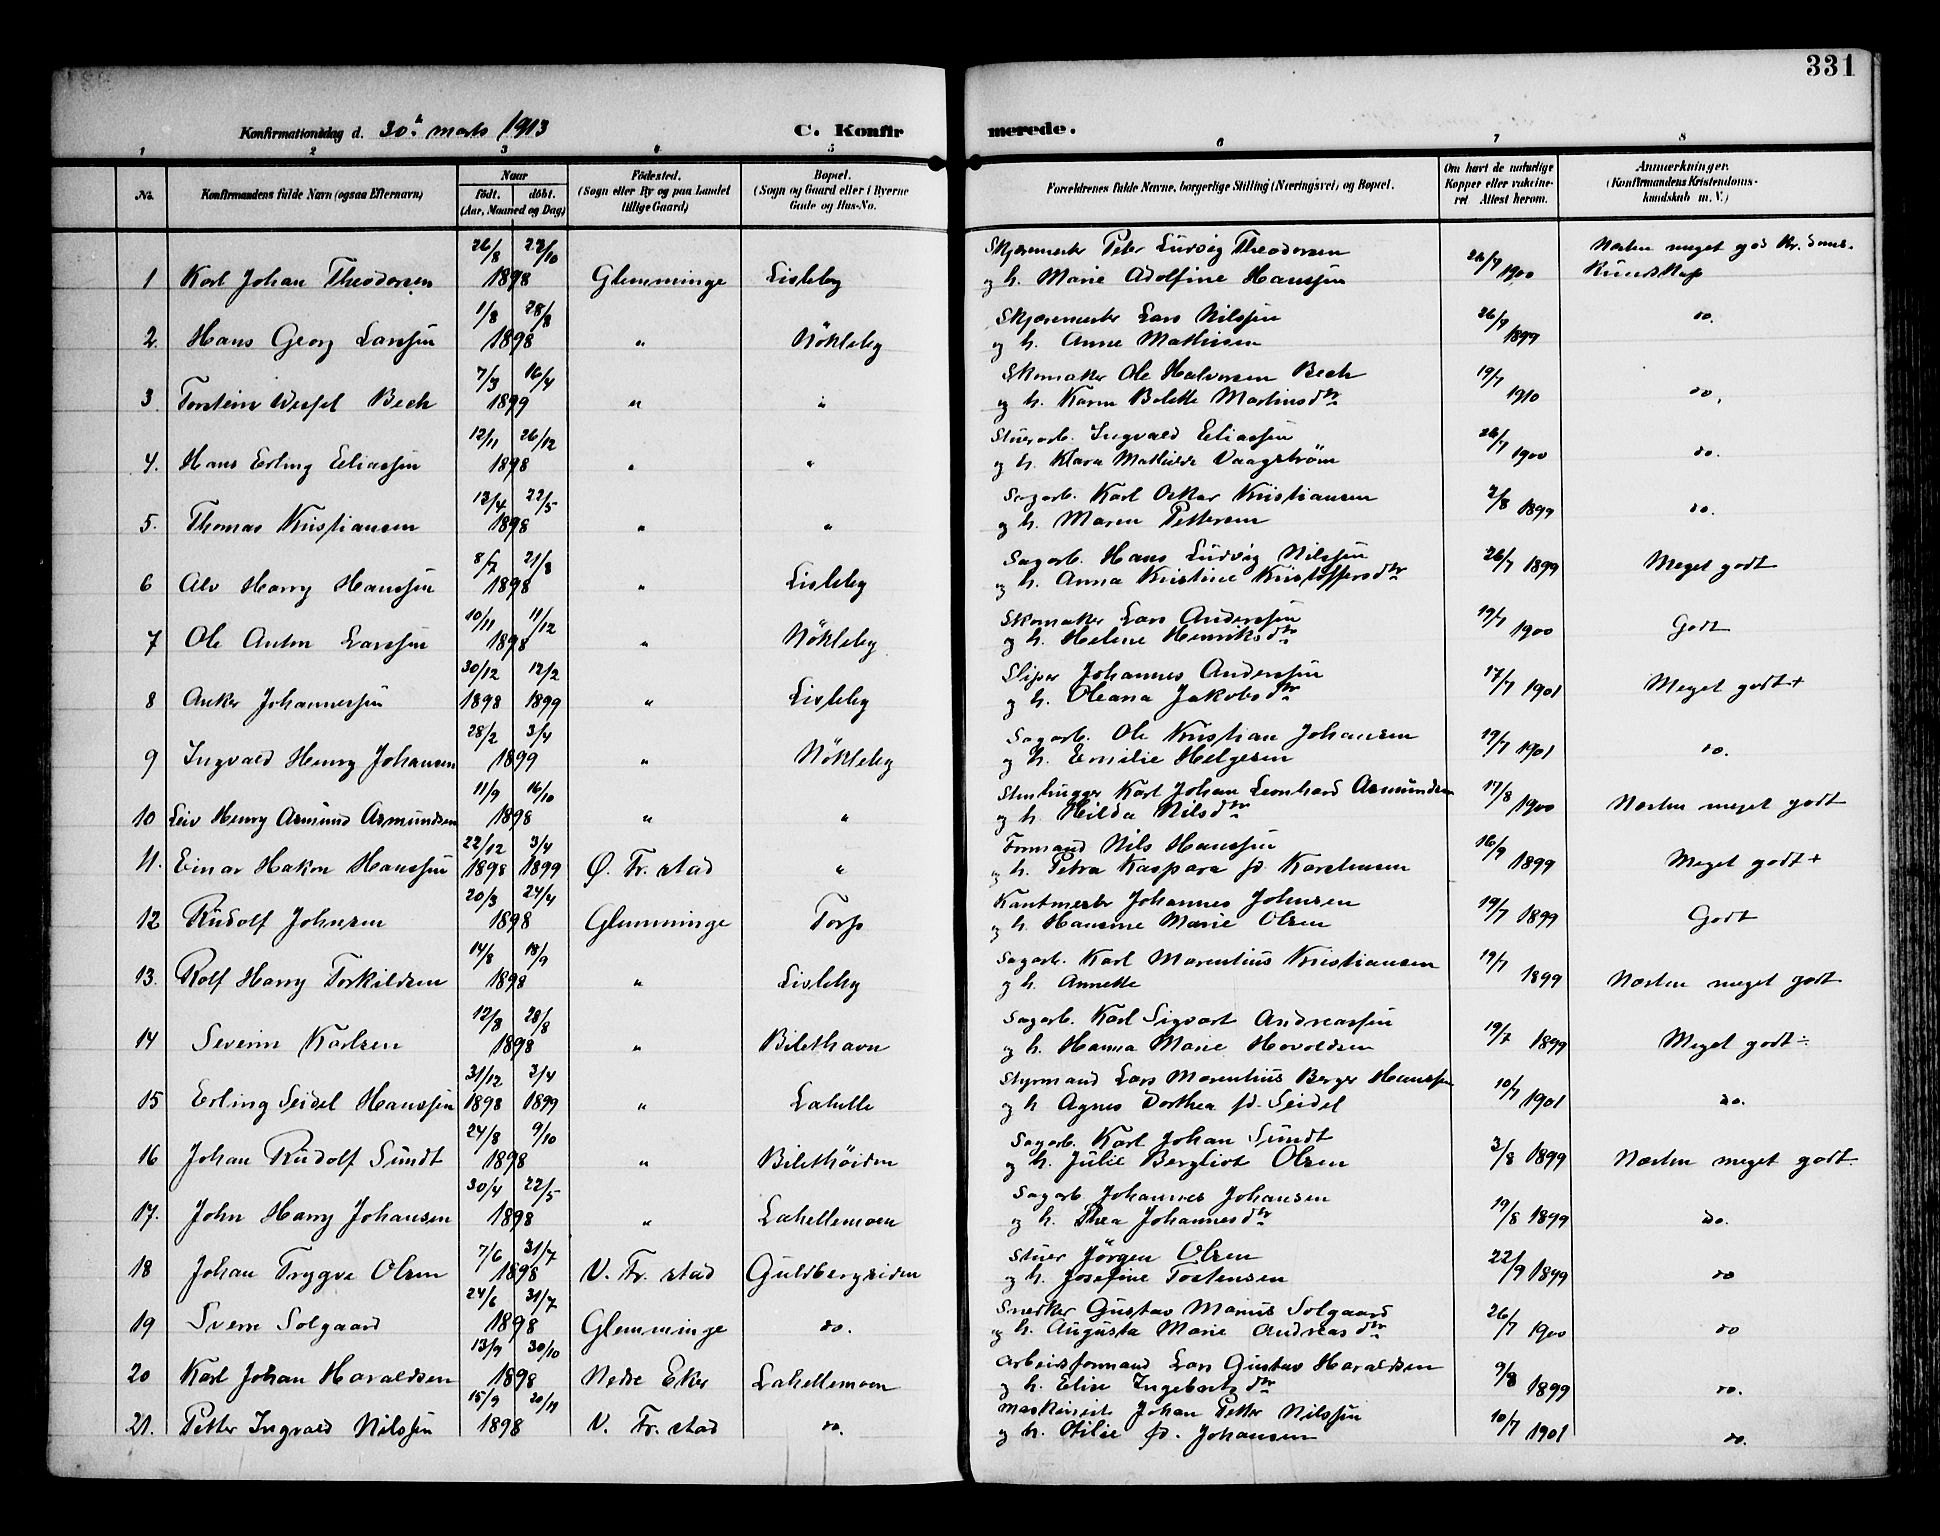 331
Konfirmationsdag d. 30. marts 1913 C. Konfirmerede.
1 2 3 4 5 6 7 8
No. Konfirmandens fulde Navn (ogsaa Efternavn) Naar født. døbt. (Aar, Maaned og Dag) Fødested. (Sogn eller By og paa Landet tillige Gaard) Bopæl. (Sogn og Gaard eller i Byerne Gade og Hus-No. Forældrenes fulde Navne, borgerlige Stilling (Næringsvei) og Bopæl. Om havt de naturlige Kopper eller vakcineret Attest herom. Anmærkninger. (Konfirmandens Kristendomskundskab m. V.)
26/8 23/10 Skjæremester Peter Ludvig Theodorsen Næsten meget god Kr.doms-
1 Karl Johan Theodorsen 1898 Glemminge Lisleby og h. Marie Adolfine Hanssen 26/7 1900 Kundskap
1/8 28/8 Skjæremester Lars Nilssen
2. Hans Georg Larssen 1898 " Nökleby og h. Anne Mathisen 26/7 1899 do.
7/3 16/4 Skomaker Ole Halvorsen Bech
3 Torstein Wessel Bech 1899 " " og h. Karen Bolette Martinsdtr 19/7 1910 do.
12/11 26/12 Stuerarb. Ingvald Eliassen
4. Hans Erling Eliassen 1898 " " og h. Klara Mathilde Vaagström 26/7 1900 do.
13/4 22/5 Sagarb. Karl Oskar Kristiansen
5. Thomas Kristiansen 1898 " " og h. Maren Pettersen 2/8 1899 do.
8/7 21/8 Sagarb. Hans Ludvig Nilssen
6 Alv Harry Hanssen 1898 " Lisleby og h. Anna Kristine Kristoffersdtr 26/7 1899 Meget godt
10/11 11/12 Skomaker Lars Anderssen
7 Ole Anton Larssen 1898 " Nökleby og h. Helene Henriksdtr 19/7 1900 Godt
30/12 12/2 Sliper Johannes Anderssen
8 Anker Johannessen 1898 1899 " Lisleby og h. Oleana Jakobsdtr 17/7 1901 Meget godt+
28/2 3/4 Sagarb. Ole Kristian Johansen
9 Ingvald Henry Johansen 1899 " Nökleby og h. Emilie Helgesen 19/7 1901 do.
11/9 16/10 Stenhugger Karl Johan Leonhard Asmundsen
10 Leiv Henry Asmund Asmundsen 1898 " " og h. Hilda Nilsdtr 17/8 1900 Næsten meget godt
22/12 3/4 Formand Nils Hanssen
11. Einar Hakon Hanssen 1898 1899 Ø. Fr. stad " og h. Petra Kaspara fd. Karstensen 16/9 1899 Meget godt+
20/3 24/4 Kantmester Johannes Johnsen
12 Rudolf Johnsen 1898 Glemminge Torp og h. Hansine Marie Olsen 19/7 1899 Godt
14/8 18/9 Sagarb. Karl Marentius Kristiansen
13. Rolf Harry Torkildsen 1898 " Lisleby og h. Annette 19/7 1899 Næsten meget godt
12/8 28/8 Sagarb. Karl Sigvart Andreassen
14 Severin Karlsen 1898 " Bilethavn og h. Hanna Marie Havoldsen 19/7 1899 Meget godt÷
31/12 3/4 Styrmand Lars Marentius Berger Hanssen
15 Erling Seidel Hanssen 1898 1899 " Lahelle og h Agnes Dorthea fd. Seidel 10/7 1901 do.
24/8 9/10 Sagarb. Karl Johan Sundt
16 Johan Rudolf Sundt 1898 " Bilethöiden og h. Julie Bergliot Olsen 3/8 1899 Næsten meget godt.
30/4 22/5 Sagarb Johannes Johansen
17. John Harry Johansen 1898 " Lahellemoen og h. Thea Johannesdtr 19/8 1899 do.
7/6 31/7 Stuer Jörgen Olsen
18 Johan Trygve Olsen 1898 V. Fr. stad Guldbergsiden og h. Josefine Tostensen 22/9 1899 do
24/6 31/7 Snedker Gustav Marius Solgaard
19 Svern Solgaard 1898 Glemminge do. og h. Augusta Marie Andreasdtr 26/7 1900 do
13/9 30/10 Arbeidsformand Lars Gustav Haraldsen
20 Karl Johan Haraldsen 1898 Nedre Eker Lahellemoen og h. Elise Ingebertzdtr 9/8 1899 do.
15/9 20/11 Maskinist Johan Petter Nilssen
21. Petter Ingvald Nilssen 1898 V. Fr. stad do. og h. Otilie fd. Johansen 10/7 1901 do.